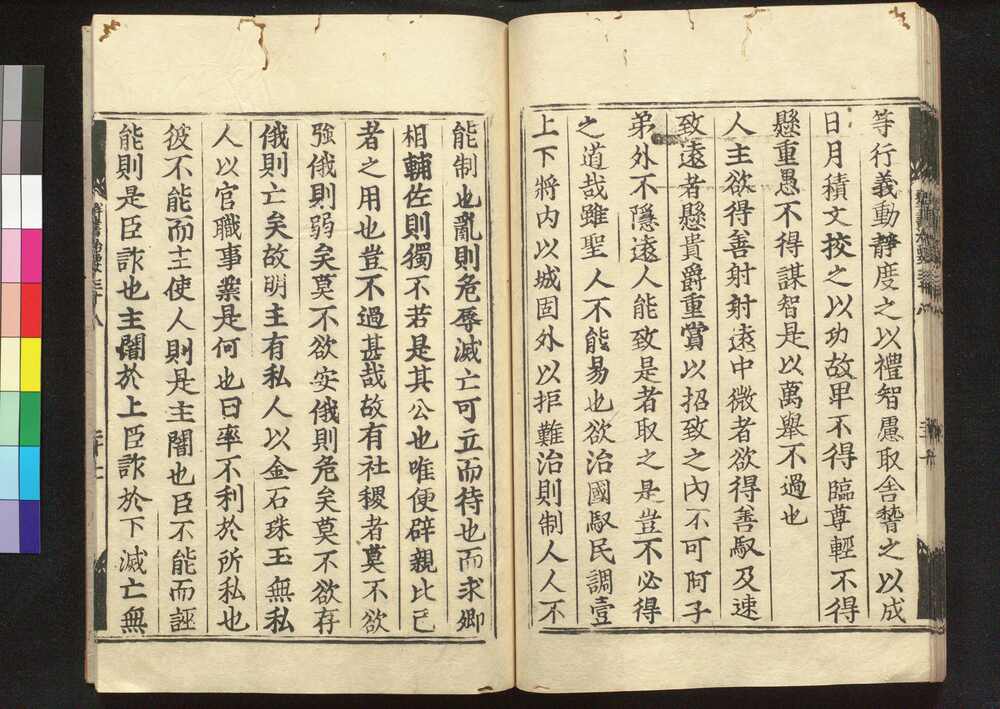 等行義動靜度之以禮智慮取舍㬱之以成
日月積文挍之以功故卑不得臨尊輕不得
懸重愚不得謀智是以萬舉不過也
人主欲得善射射遠中微者欲得善馭及速
致遠者懸貴爵重賞以招致之內不可阿子
弟外不隱遠人能致是者取之是豈不必得
之道哉雖聖人不能易也欲治國馭民調壹
上下將內以城固外以拒難治則制人人不
能制也亂則危辱滅亡可立而待也而求卿
相輔佐則獨不若是其公也唯便辟親比己
者之用也豈不過甚哉故有社稷者莫不欲
強俄則弱矣莫不欲安俄則危矣莫不欲存
俄則亡矣故明主有私人以金石珠玉無私
人以官職事業是何也曰率不利於所私也
彼不能而主使人則是主闇也臣不能而誣
能則是臣詐也主闇於上臣詐於下滅亡無